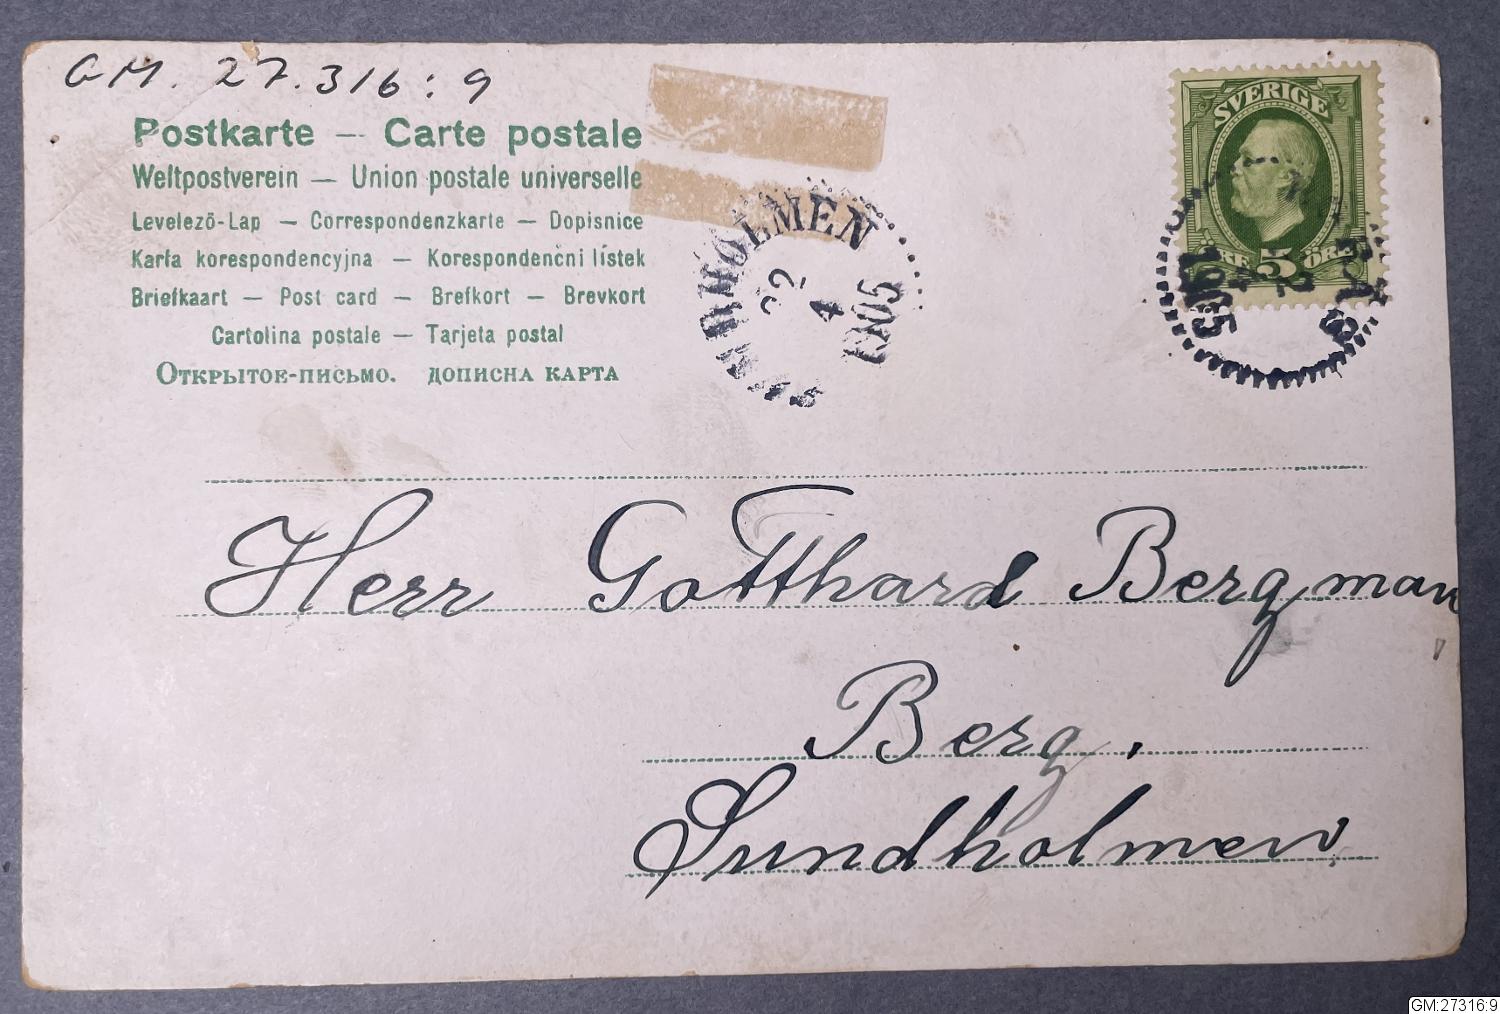 GM. 27.316:9
Postkarte — Carte postale
Weltpostverein — Union postale universelle
Levelező-Lap — Correspondenzkarte — Dopisnice
Karta korespondencyjna — Korespondenčni lístek
Briefkaart — Post card — Brefkort — Brevkort
Cartolina postale — Tarjeta postal
Открытое-письмо. дописна карта
SVERIGE
5 ÖRE
1905
HOLMEN
22
4
1905
Herr Gotthard Bergman
Berg.
Sundholmen.
GM:27316:9